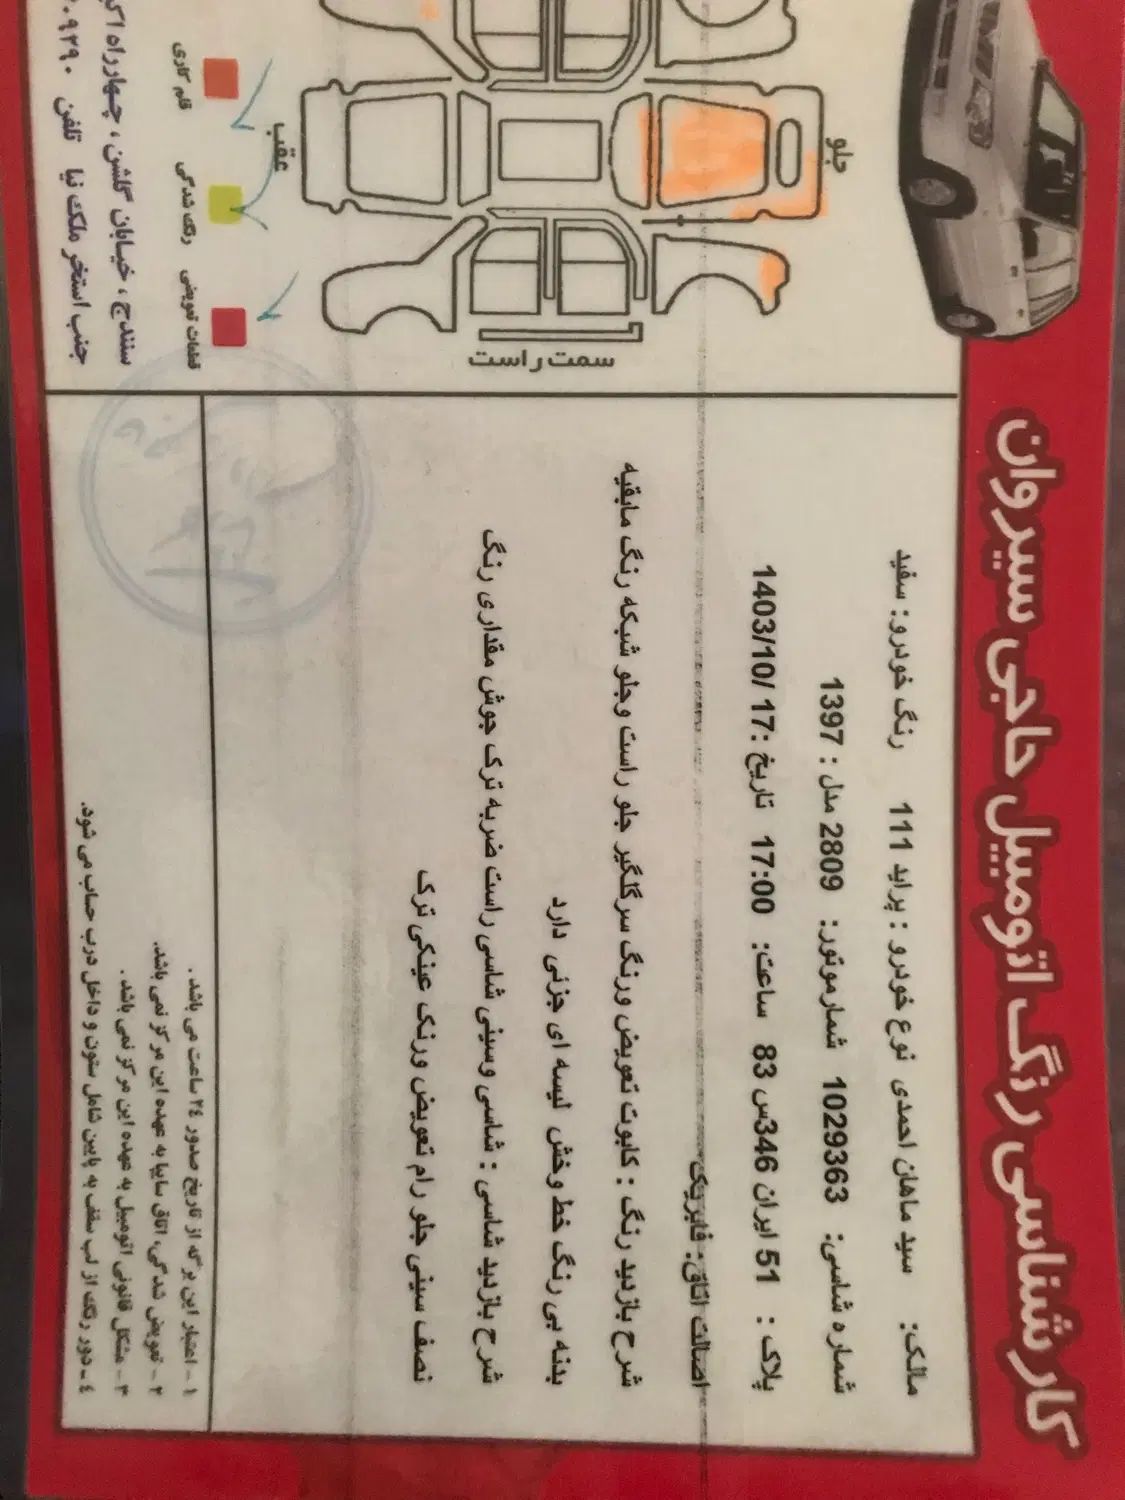 کارشناسی رنگ اتومبیل حاجی سیروان
مالک: سید ماهان احمدی نوع خودرو : پراید 111 رنگ خودرو: سفید
شماره شاسی: 1029363 شمارموتور: 2809 مدل : 1397
پلاک : 51 ایران 346س 83 ساعت: 17:00 تاریخ :17 /1403/10
اصالت اتاق: فابریک
شرح بازدید رنگ : کاپوت تعویض ورنگ سرگلگیر جلو راست وجلو شبکه رنگ مابقیه
بدنه بی رنگ خط وخش لیسه ای جزئی دارد
شرح بازدید شاسی : شاسی وسینی شاسی راست ضربه ترک جوش مقداری رنگ
نصف سینی جلو رام تعویض ورنک عینکی ترک
۱ - اعتبار این برگه از تاریخ صدور ۲۴ ساعت می باشد .
۲ - تعویض شدگی، اتاق سایپا به عهده این مرکز نمی باشد.
۳ - مشکل قانونی اتومبیل به عهده این مرکز نمی باشد .
۴ - دور رنگ از لب سقف به پایین شامل ستون و داخل درب حساب می شود.
جلو
عقب
سمت راست
قلم کاری
رنگ شدگی
قطعات تعویضی
سنندج ، خیابان گلشن ، چهارراه
جنب استخر ملک نیا تلفن